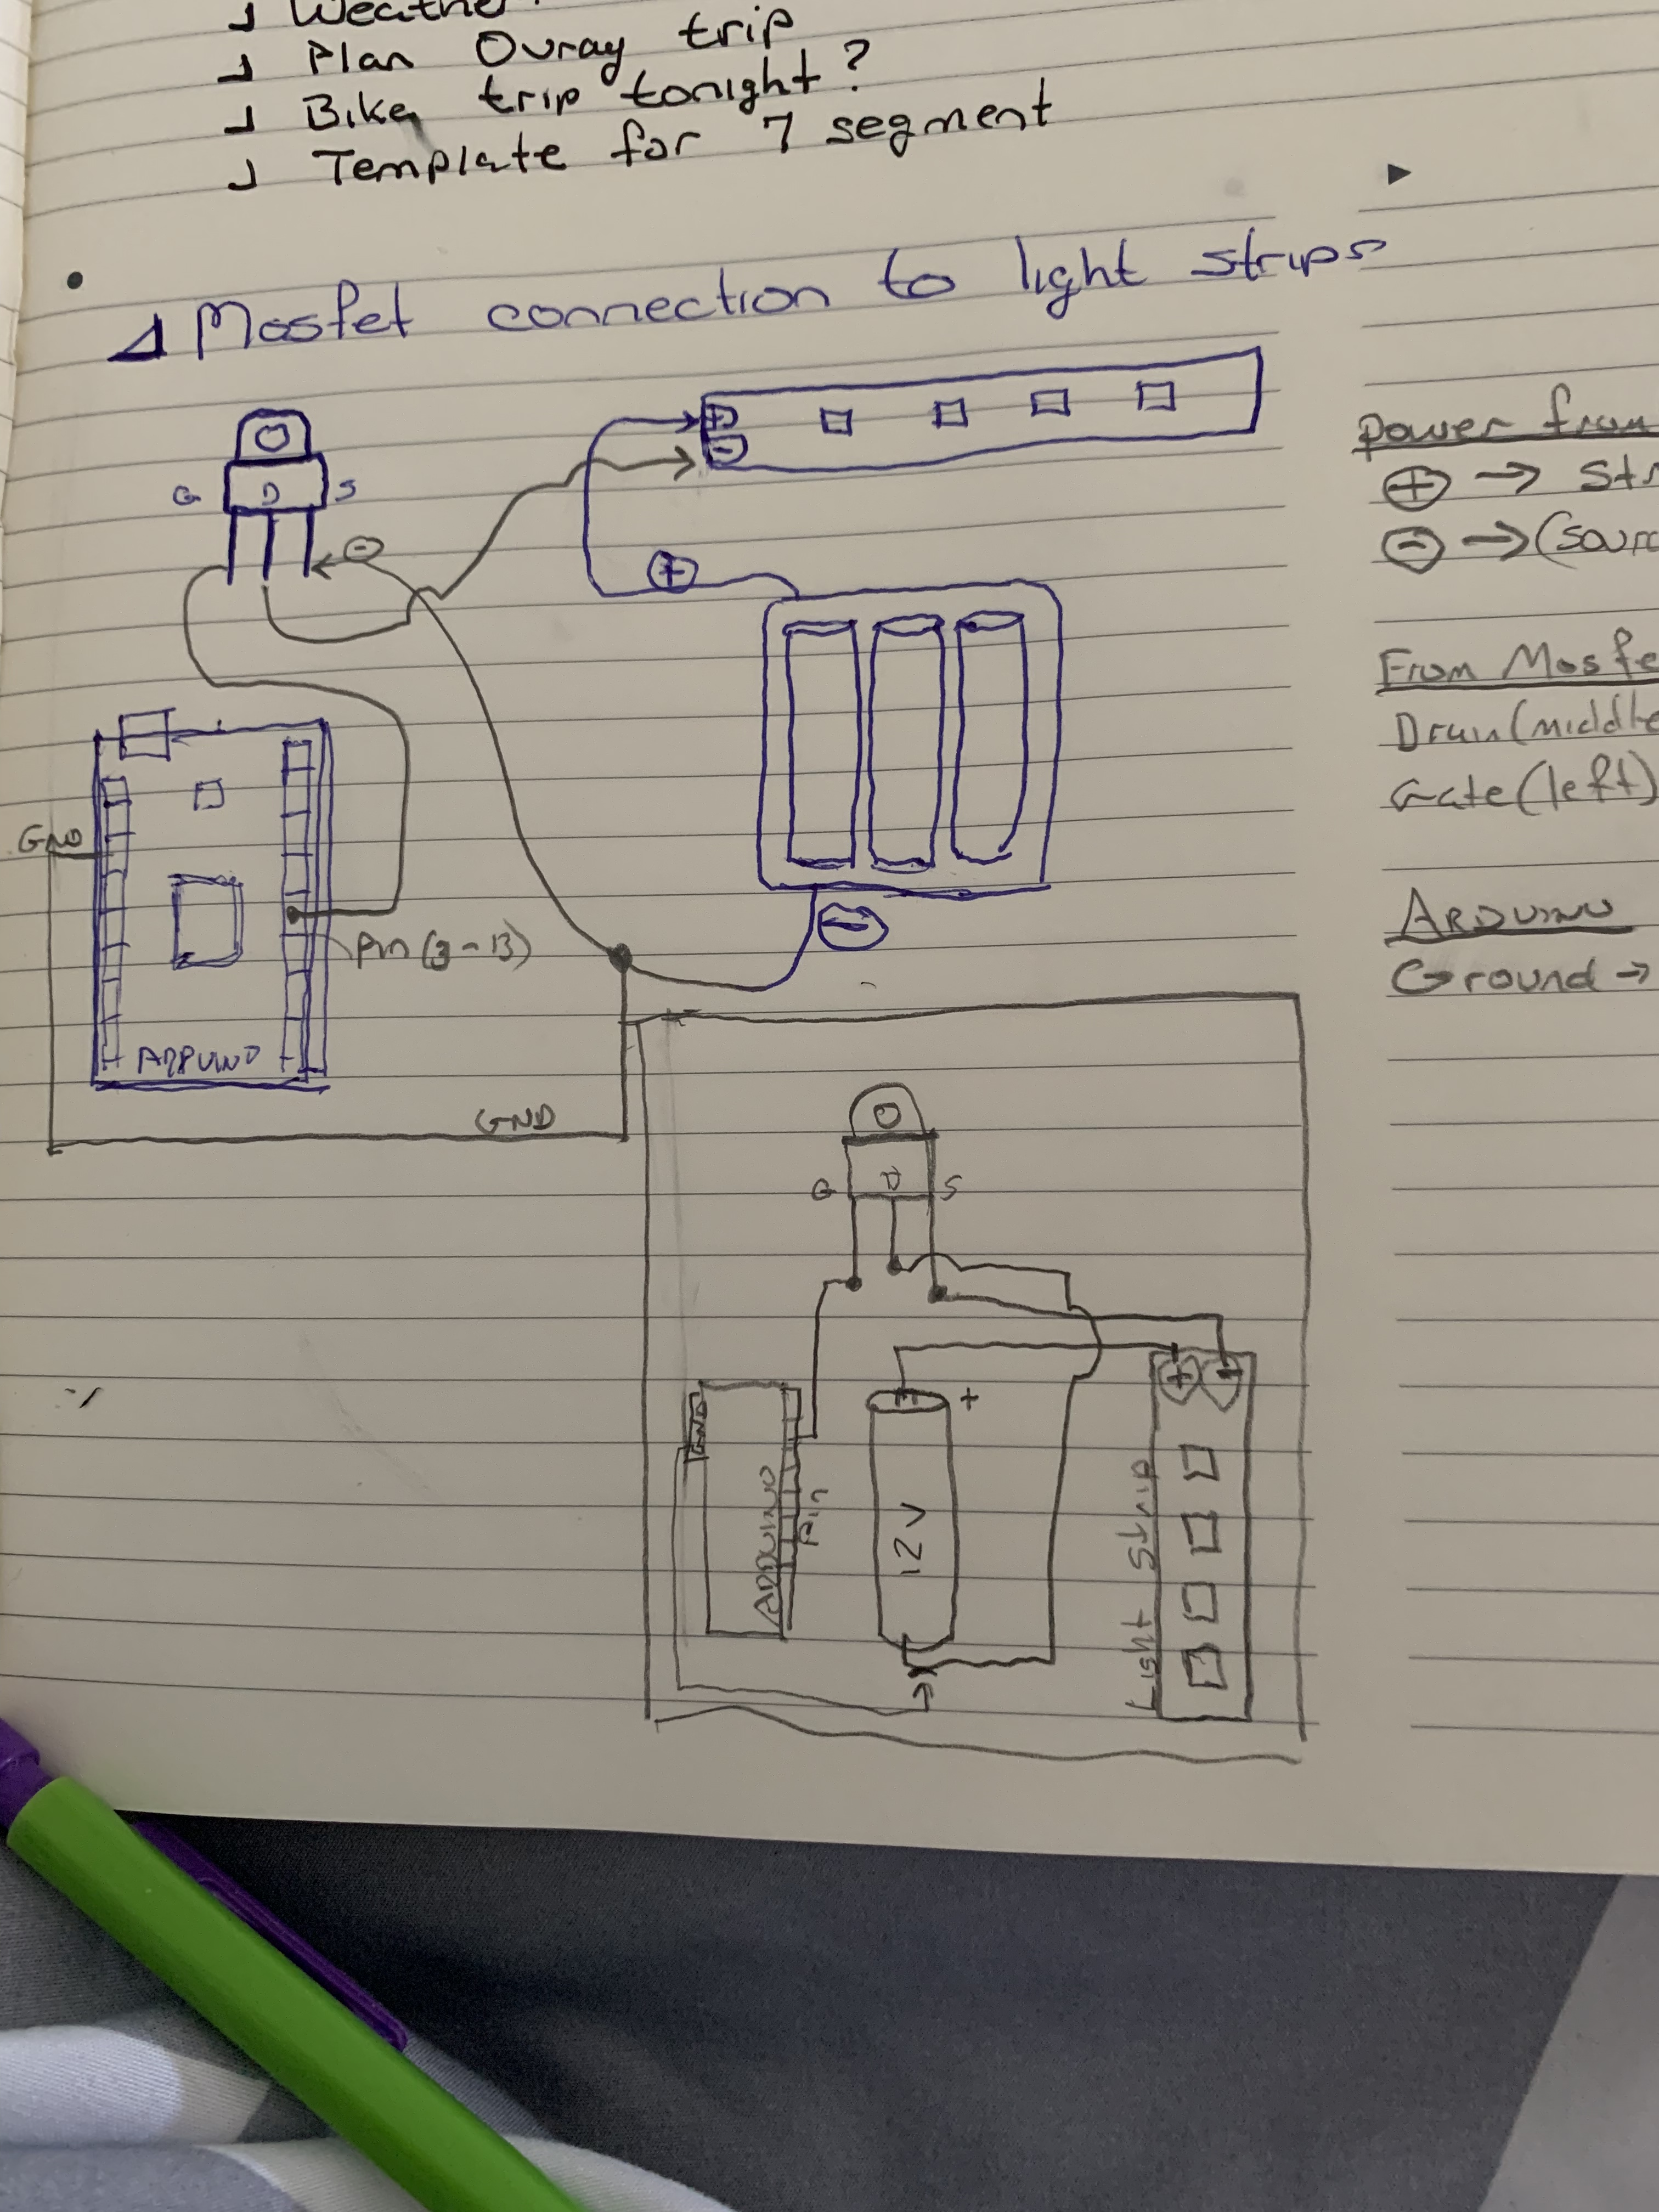 Weathe
Plan Ouray trip
Bike trip tonight?
Template for 7 segment
Mosfet connection to light strips
G D S
+
-
-
+
GND
Pin (3-13)
-
ARDUINO
GND
G D S
+ -
+
GND
ARDUINO
Pin
12V
Light Strip
power from
+ → Str
- → (sourc
From Mosfe
Drain (middle
Gate (left)
ARDUINO
Ground →